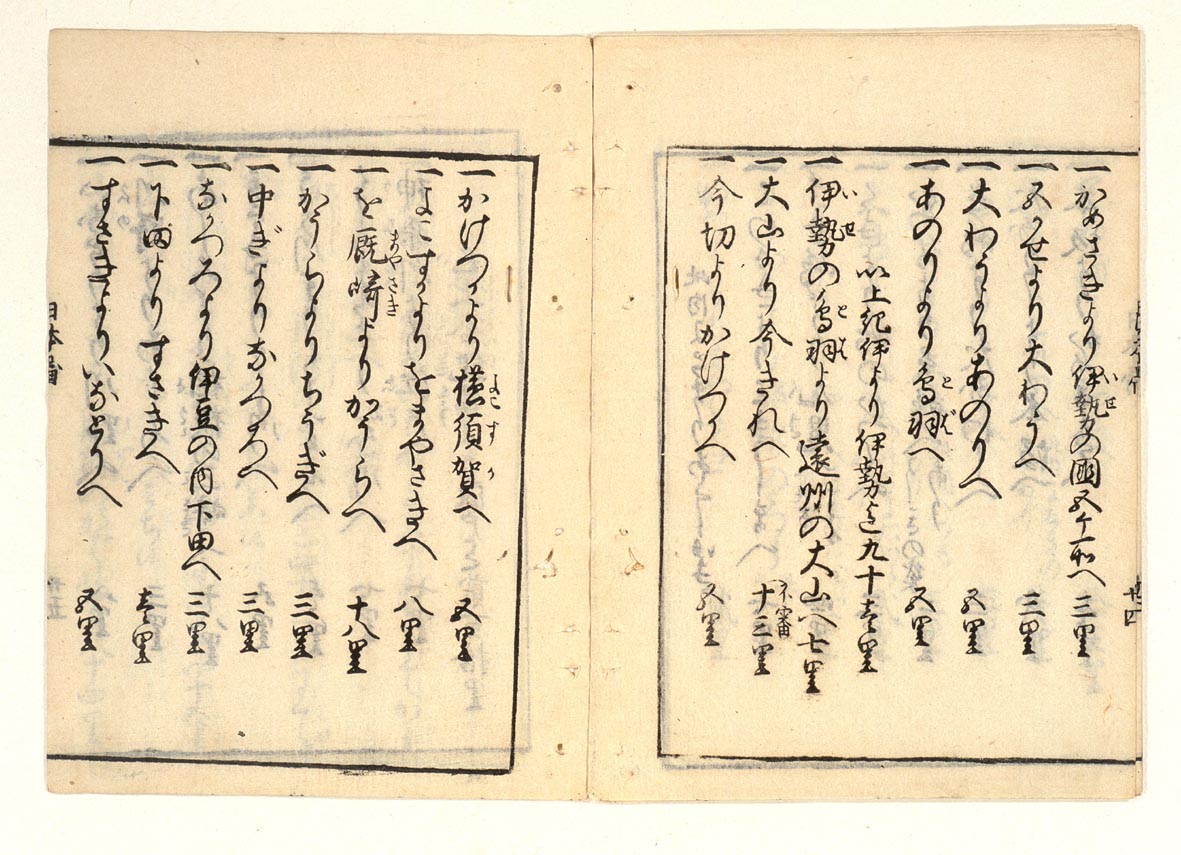 一かめさきより伊勢の國五ケ所へ 三里
一五かせより大わうへ 三里
一大わうよりあのりへ 五里
一あのりより鳥羽へ 五里
以上紀伊より伊勢迄九十壱里
一伊勢の鳥羽より遠州の大山へ七里
一大山より今きれへ 十三里
不審
一今切よりかけつかへ 五里
一かけつかより横須賀へ 五里
一よこすかよりをまやさきへ 八里
一を厩崎よりかうらへ 十八里
一かうらよりちうぎへ 三里
一中ぎよりながつろへ 三里
一ながつろより伊豆の内下田へ 三里
一下田よりすさきへ 壱里
一すさきよりいなとりへ 五里